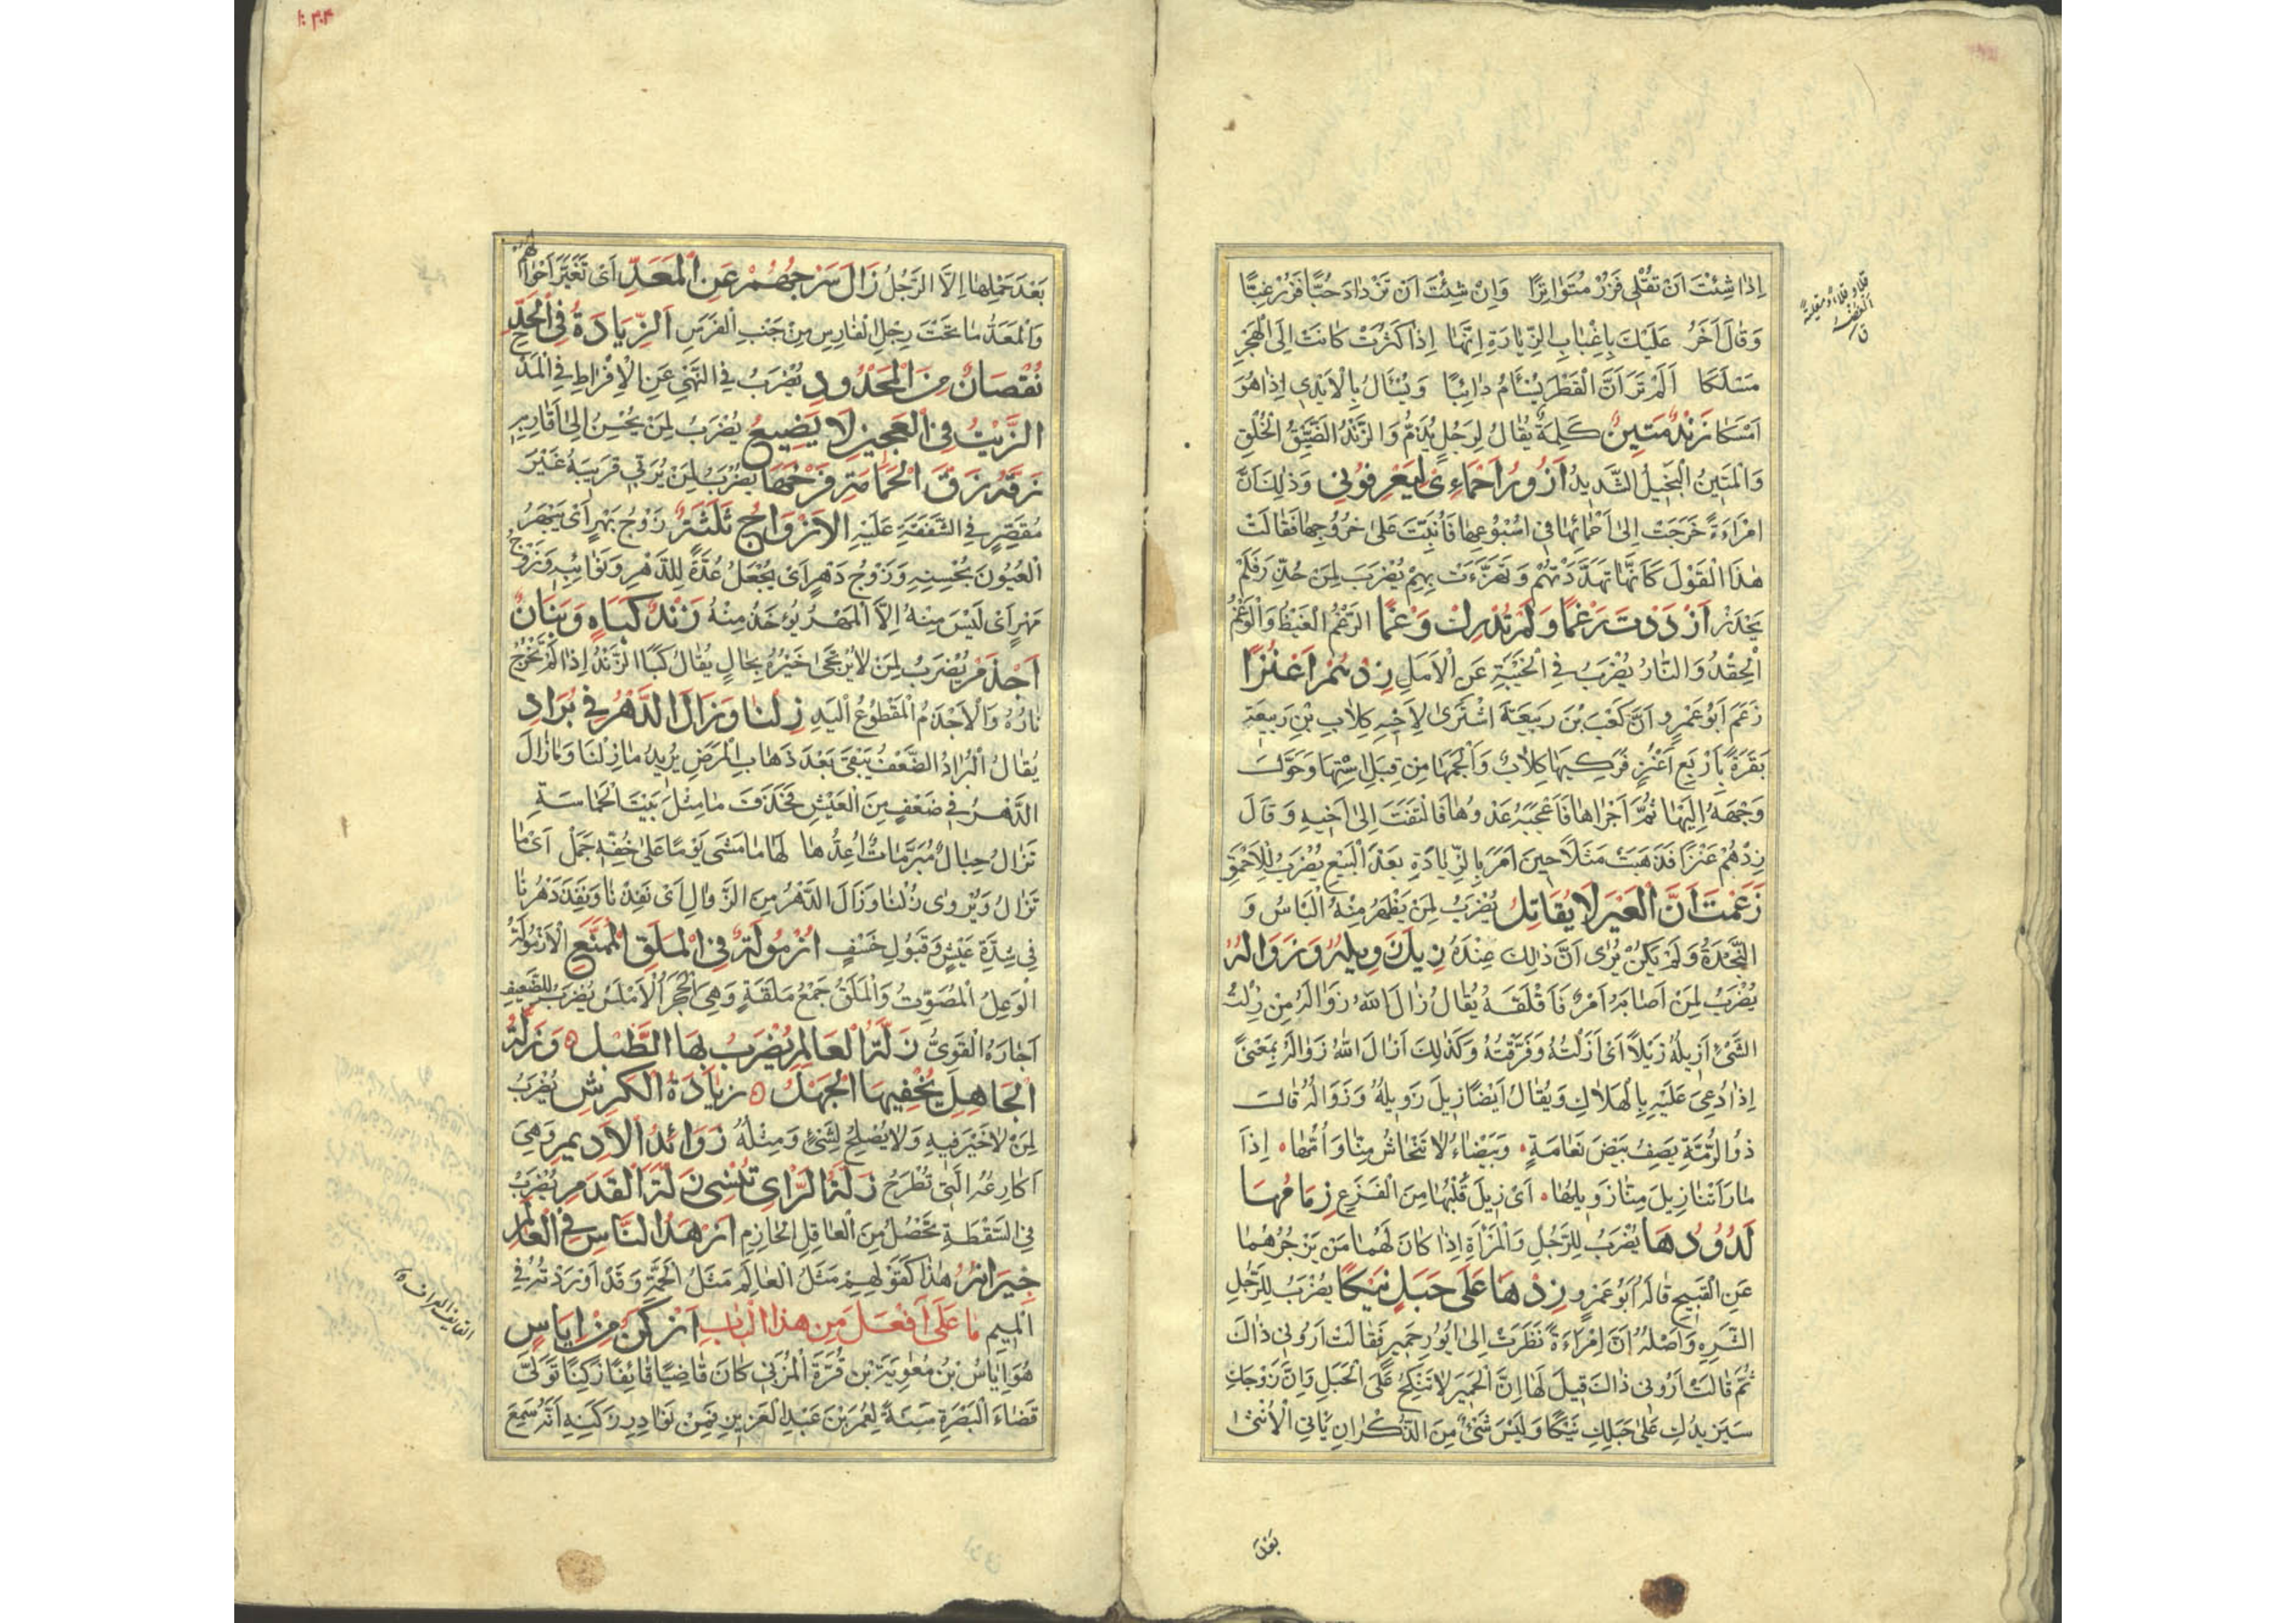 اِذَا شِئْتَ اَنْ تُقْلٰى فَزُرْ مُتَوَاتِرًا وَاِنْ شِئْتَ اَنْ تَزْدَادَ حُبًّا فَزُرْ غِبًّا
وَقَالَ اٰخَرُ عَلَيْكَ بِاِغْبَابِ الزِّيَارَةِ اِنَّهَا اِذَا كَثُرَتْ كَانَتْ اِلَى الْهَجْرِ
مَسْلَكًا اَلَمْ تَرَ اَنَّ الْقَطْرَ يُسْأَمُ دَائِبًا وَيُسْأَلُ بِالْاَيْدِي اِذَا هُوَ
اَمْسَكَا زَنْدٌ مَتِينٌ كَلِمَةٌ يُقَالُ لِرَجُلٍ يُذَمُّ وَالزَّنْدُ الضَّيِّقُ الْخُلُقِ
وَالْمَتِينُ الْبَخِيلُ الشَّدِيدُ اَزُورُ اَحْمَاءِى لِيَعْرِفُونِي وَذٰلِكَ اَنَّ
امْرَاءَةً خَرَجَتْ اِلٰى اَحْمَائِهَا فِي اُسْبُوعِهَا فَاُنِّبَتْ عَلٰى خُرُوجِهَا فَقَالَتْ
هٰذَا الْقَوْلَ كَاَنَّهَا تَهَدَّدَتْهُمْ وَتَهَزَّءَتْ بِهِمْ يُضْرَبُ لِمَنْ حُذِّرَ فَلَمْ
يَحْذَرْ اَزْدَدْتَ رَغْمًا وَلَمْ تُدْرِكْ وَغْمًا الرَّغْمُ الْغَيْظُ وَالْوَغْمُ
الْحِقْدُ وَالثَّارُ يُضْرَبُ فِي الْخَيْبَةِ عَنِ الْاَمَلِ زِدْهُمْ اَعْنُزًا
زَعَمَ اَبُو عَمْرٍو اَنَّ كَعْبَ بْنَ رَبِيعَةَ اشْتَرٰى لِاَخِيهِ كِلَابِ بْنِ رَبِيعَةَ
بَقَرَةً بِاَرْبَعِ اَعْنُزٍ فَرَكِبَهَا كِلَابٌ وَاَلْجَمَهَا مِنْ قِبَلِ اسْتِهَا وَحَوَّلَ
وَجْهَهُ اِلَيْهَا ثُمَّ اَجْرَاهَا فَاَعْجَبَهُ عَدْوُهَا فَالْتَفَتَ اِلٰى اَخِيهِ وَقَالَ
زِدْهُمْ عَنْزًا فَذَهَبَتْ مَثَلًا حِينَ اَمَرَ بِالزِّيَادَةِ بَعْدَ الْبَيْعِ يُضْرَبُ لِلْاَحْمَقِ
زَعَمْتَ اَنَّ الْعَيْرَ لَا يُقَاتِلُ يُضْرَبُ لِمَنْ يَظْهَرُ مِنْهُ الْبَاْسُ وَ
النَّجْدَةُ وَلَمْ يَكُنْ يُرٰى اَنَّ ذٰلِكَ عِنْدَهُ زِيلَ زَوِيلُهُ وَزَوَالُهُ
يُضْرَبُ لِمَنْ اَصَابَهُ اَمْرٌ فَاَقْلَقَهُ يُقَالُ زَالَ اللّٰهُ زَوَالَهُ مِنْ زِلْتُ
الشَّئَ اَزِيلُهُ زَيْلًا اَىْ اَزَلْتُهُ وَفَرَّقْتُهُ وَكَذٰلِكَ اَزَالَ اللّٰهُ زَوَالَهُ بِمَعْنًى
اِذَا دُعِيَ عَلَيْهِ بِالْهَلَاكِ وَيُقَالُ اَيْضًا زِيلَ زَوِيلُهُ وَزَوَالُهُ قَالَ
ذُو الرُّمَّةِ يَصِفُ بَيْضَ نَعَامَةٍ وَبَيْضَاءُ لَا تَنْحَاشُ مِنَّا وَاُمُّهَا اِذَا
مَا رَاَتْنَا زِيلَ مِنَّا زَوِيلُهَا اَىْ زِيلَ قَلْبُهَا مِنَ الْفَزَعِ زِمَامُهَا
لَدُودُهَا يُضْرَبُ لِلرَّجُلِ وَالْمَرْاَةِ اِذَا كَانَ لَهُمَا مَنْ يَزْجُرُهُمَا
عَنِ الْقَبِيحِ قَالَهُ اَبُو عَمْرٍو زِدْهَا عَلٰى حَبَلٍ نَيْكًا يُضْرَبُ لِلرَّجُلِ
الشَّرِهِ وَاَصْلُهُ اَنَّ اِمْرَاءَةً نَظَرَتْ اِلٰى اُيُورِ حَمِيرٍ فَقَالَتْ اَرُونِي ذَاكَ
ثُمَّ قَالَتْ اَرُونِي ذَاكَ قِيلَ لَهَا اِنَّ الْحَمِيرَ لَا تَنْكِحُ عَلَى الْحَبَلِ وَاِنَّ زَوْجَكِ
سَيَزِيدُكِ عَلٰى حَبَلِكِ نَيْكًا وَلَيْسَ شَئٌ مِنَ الذُّكْرَانِ يَاْتِي الْاُنْثٰى
بَعْدَ
بَعْدَ حَمْلِهَا اِلَّا الرَّجُلُ زَالَ سَرْجُهُمْ عَنِ الْمَعَدِّ اَىْ تَغَيَّرَ اَحْوَالُهُمْ
وَالْمَعَدُّ مَا تَحْتَ رِجْلِ الْفَارِسِ مِنْ جَنْبِ الْفَرَسِ اَلزِّيَادَةُ فِي الْحَدِّ
نُقْصَانٌ مِنَ الْمَحْدُودِ يُضْرَبُ فِي النَّهْيِ عَنِ الْاِفْرَاطِ فِي الْمَدْحِ
الزَّيْتُ فِي الْعَجِينِ لَا يَضِيعُ يُضْرَبُ لِمَنْ يُحْسِنُ اِلٰى اَقَارِبِهِ
زَقَّهُ زَقَّ الْحَمَامَةِ فَرْخَهَا يُضْرَبُ لِمَنْ يُرَبِّي قَرِيبَهُ غَيْرَ
مُقَصِّرٍ فِي الشَّفَقَةِ عَلَيْهِ الْاَزْوَاجُ ثَلٰثَةٌ زَوْجُ بَهْرٍ اَىْ يَبْهَرُ
الْعُيُونَ بِحُسْنِهِ وَزَوْجُ دَهْرٍ اَىْ يُجْعَلُ عُدَّةً لِلدَّهْرِ وَنَوَائِبِهِ وَزَوْجُ
مَهْرٍ اَىْ لَيْسَ مِنْهُ اِلَّا الْمَهْرُ يُؤْخَذُ مِنْهُ زَنْدٌ كَبَاهٍ وَبَنَانٌ
اَجْذَمُ يُضْرَبُ لِمَنْ لَا يُرْجٰى خَيْرُهُ بِحَالٍ يُقَالُ كَبَا الزَّنْدُ اِذَا لَمْ تَخْرُجْ
نَارُهُ وَالْاَجْذَمُ الْمَقْطُوعُ الْيَدِ زِلْنَا وَزَالَ الدَّهْرُ فِي بُرَادٍ
يُقَالُ الْبُرَادُ الضَّعْفُ يَبْقٰى بَعْدَ ذَهَابِ الْمَرَضِ يُرِيدُ مَا زِلْنَا وَمَا زَالَ
الدَّهْرُ فِي ضَعْفٍ مِنَ الْعَيْشِ فَحَذَفَ مَا مِثْلَ بَيْتِ الْحَمَاسَةِ
تَزَالُ حِبَالٌ مُبْرَمَاتٌ اُعِدُّهَا لَهَا مَا مَشٰى يَوْمًا عَلٰى خُفِّهِ جَمَلْ اَىْ مَا
تَزَالُ وَيُرْوٰى زُلْنَا وَزَالَ الدَّهْرُ مِنَ الزَّوَالِ اَىْ نَفِدْنَا وَنَفِدَ دَهْرُنَا
فِي شِدَّةِ عَيْشٍ وَقَبُولِ خَسْفٍ اُزْمُولَةٌ فِي الْمَلَقِ الْمُمَنَّعِ الْاُزْمُولَةُ
الْوَعِلُ الْمُصَوِّتُ وَالْمَلَقُ جَمْعُ مَلَقَةٍ وَهِيَ الْحَجَرُ الْاَمْلَسُ يُضْرَبُ لِلضَّعِيفِ
اَجَارَهُ الْقَوِىُّ زَلَّةُ الْعَالِمِ يُضْرَبُ لَهَا الطَّبْلُ وَزَلَّةُ
الْجَاهِلِ يُخْفِيهَا الْجَهْلُ زِيَادَةُ الْكَرِشِ يُضْرَبُ
لِمَنْ لَا خَيْرَ فِيهِ وَلَا يُصْلِحُ لِشَئٍ وَمِثْلُهُ زَوَائِدُ الْاَدِيمِ وَهِيَ
اَكَارِعُهُ الَّتِي تُطْرَحُ زَلَّةُ الرَّاْىِ تُنْسِي زَلَّةَ الْقَدَمِ يُضْرَبُ
فِي السَّقْطَةِ تَحْصُلُ مِنَ الْعَاقِلِ الْحَازِمِ اَزْهَدُ النَّاسِ فِي الْعَالِمِ
جِيرَانُهُ هٰذَا كَقَوْلِهِمْ مَثَلُ الْعَالِمِ مَثَلُ الْحَمَّةِ وَقَدْ اَوْرَدْتُهُ فِي
الْمِيمِ مَا عَلٰى اَفْعَلَ مِنْ هٰذَا الْبَابِ اَزْكَنُ مِنْ اِيَاسٍ
هُوَ اِيَاسُ بْنُ مُعٰوِيَةَ بْنِ قُرَّةَ الْمُزَنِيّ كَانَ قَاضِيًا قَائِفًا زَكِنًا تَوَلّٰى
قَضَاءَ الْبَصْرَةِ سَنَةً لِعُمَرَ بْنِ عَبْدِ الْعَزِيزِ فَمِنْ نَوَادِرِ زَكَنِهِ اَنَّهُ سَمِعَ
القايف العراف